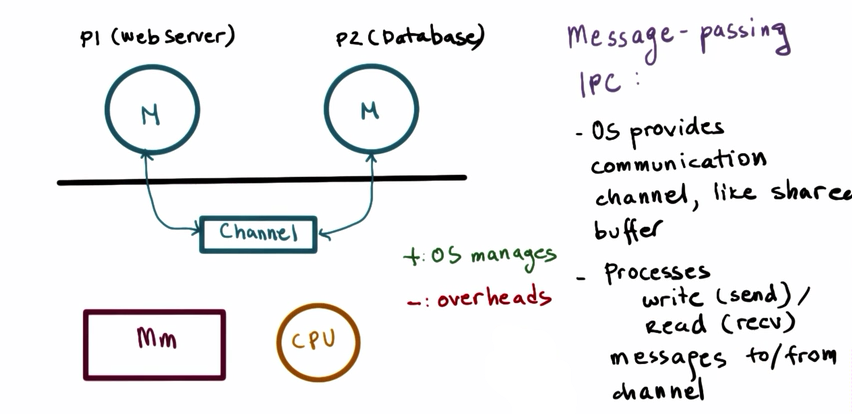 P1 (Web Server)
P2 (Database)
M
M
Channel
+: OS manages
-: overheads
Mm
CPU
Message-passing
IPC:
- OS provides
communication
channel, like shared
buffer
- Processes
write (send) /
Read (recv)
messages to/from
channel